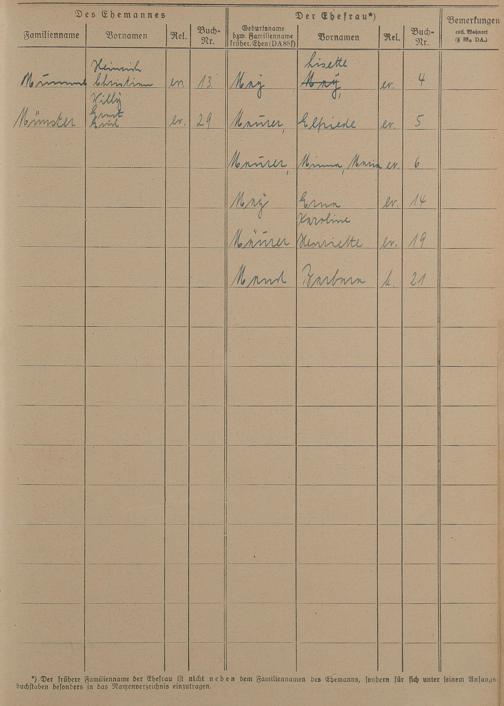 Des Ehemannes Der Ehefrau*) Bemerkungen
Familienname Vornamen Rel. Buch-Nr. Geburtsname bzw. Familienname früher. Ehen (DA 88f) Vornamen Rel. Buch-Nr.
Heinrich Lisette
Christian ev. 13. May May, ev. 4
Willy
Münster Ernst ev. 29 Maurer, Elfriede ev. 5
Maurer, Minna, Maria ev. 6
May Erna ev. 14
Karoline
Mäurer Henriette ev. 19
Mand Barbara k. 21
*) Der frühere Familienname der Ehefrau ist nicht neben dem Familiennamen des Ehemanns, sondern für sich unter seinem Anfangs-
buchstaben besonders in das Namenverzeichnis einzutragen.